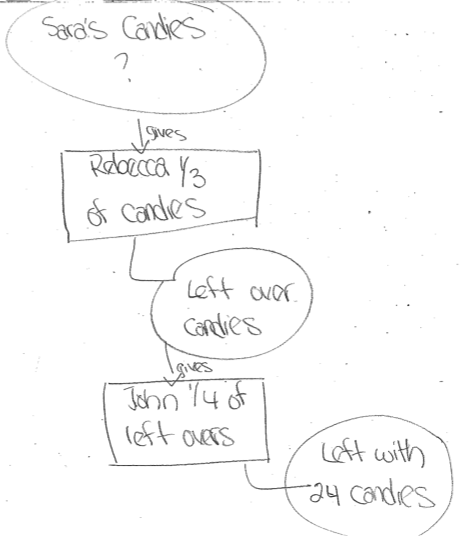 Sara's Candies
?
gives
Rebecca 1/3
of candies
Left over
candies
gives
John 1/4 of
left overs
Left with
24 candies